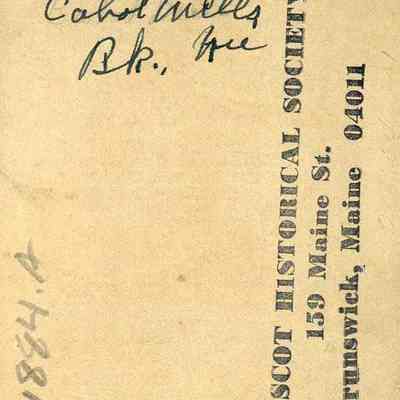 Cabot Mills
Bk., Me
SCOT HISTORICAL SOCIETY
159 Maine St.
runswick, Maine 04011
1884.A